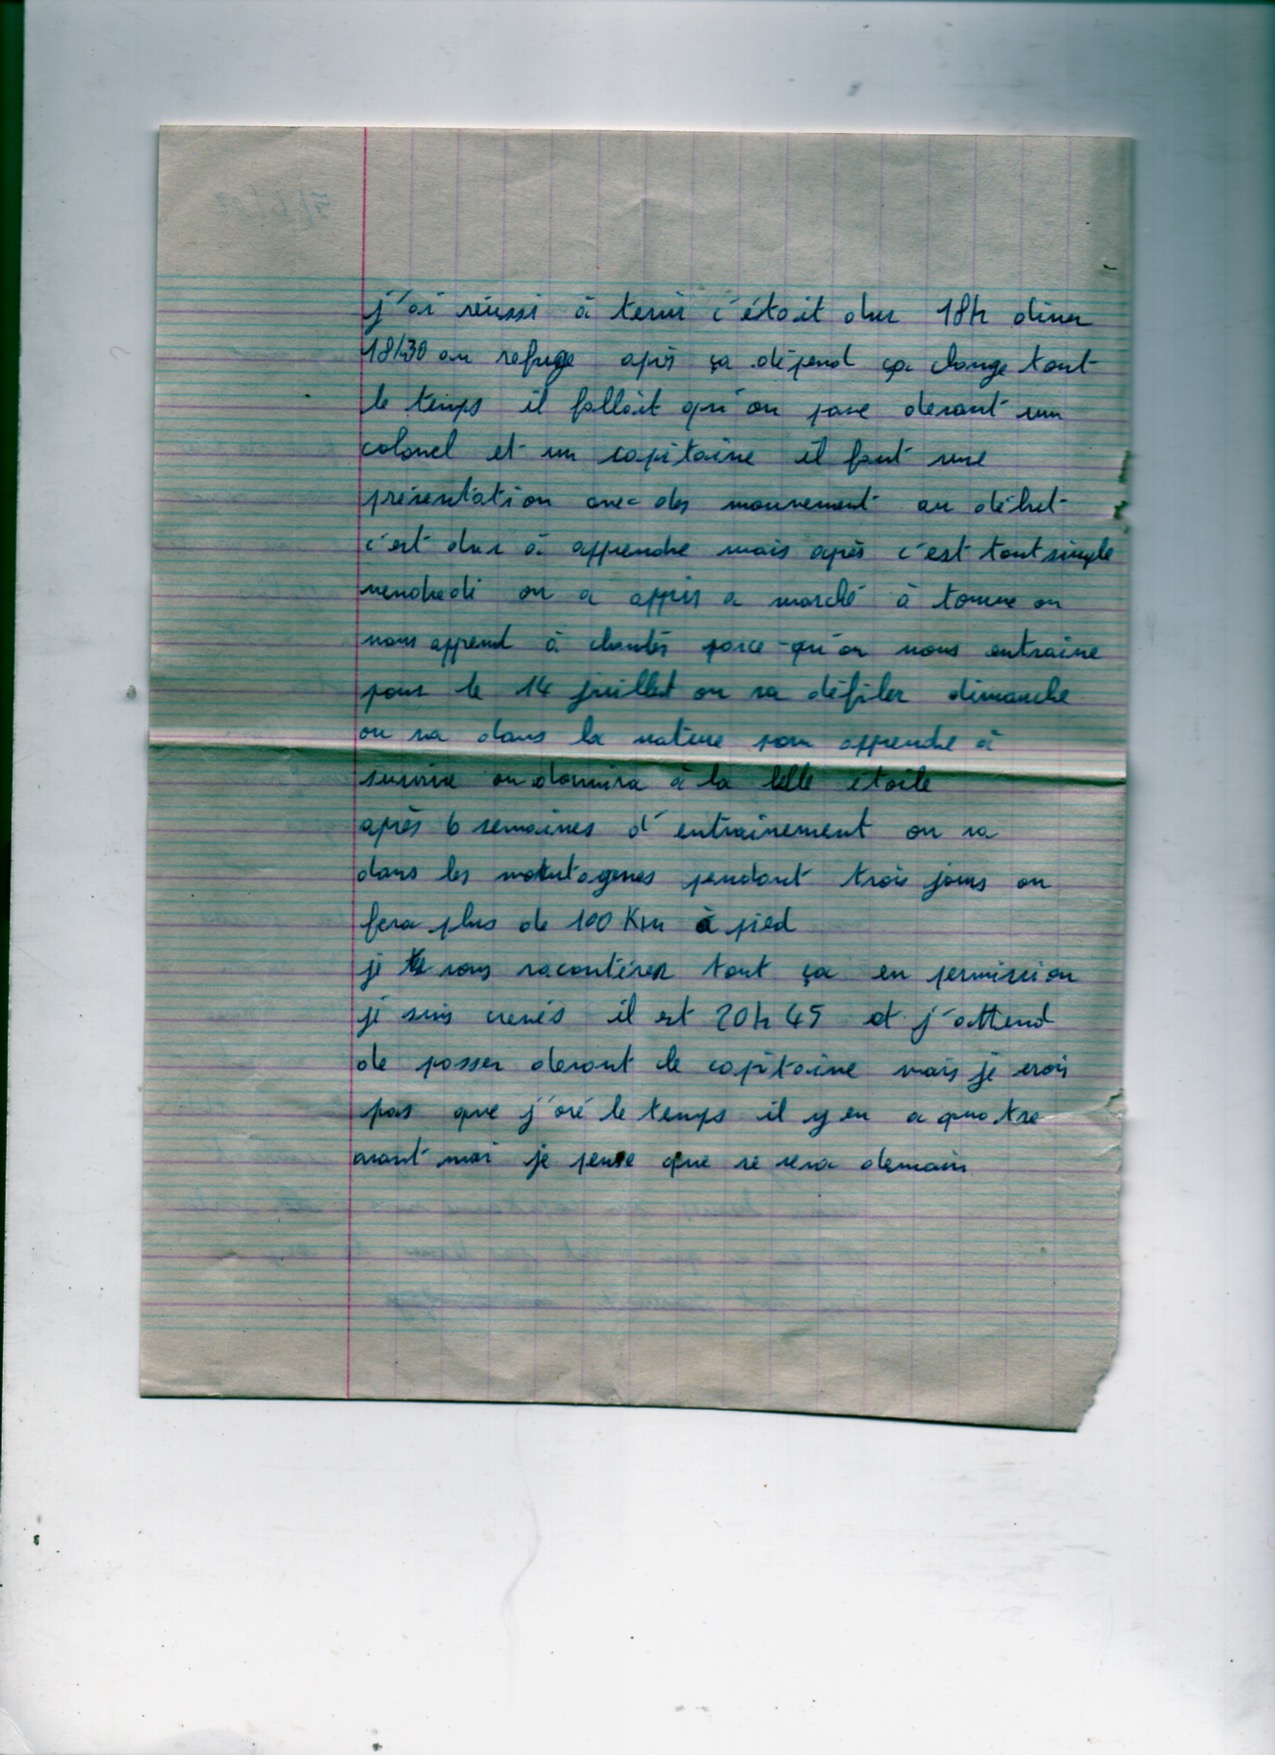 j'ai réussi à tenir c'était dur 18h diner
18h30 au refuge après ça dépend ça change tout
le temps il fallait qu'on passe devant un
colonel et un capitaine il faut une
présentation avec des mouvement au début
c'est dur à apprendre mais après c'est tout simple
vendredi on a appris a marché à tourne on
nous apprend à chantés parce-qu'on nous entraine
pour le 14 juillet on va défiler dimanche
on va dans la nature pour apprendre à
survive on dormira à la belle étoile
après 6 semaines d'entrainement on va
dans les montagnes pendant trois jours on
fera plus de 100 Km à pied
je vous raconterer tout ça en permission
je suis crevés il est 20h45 et j'attend
de passer devant le capitaine mais je crois
pas que j'oré le temps il y en a quatre
avant moi je pense que se sera demain